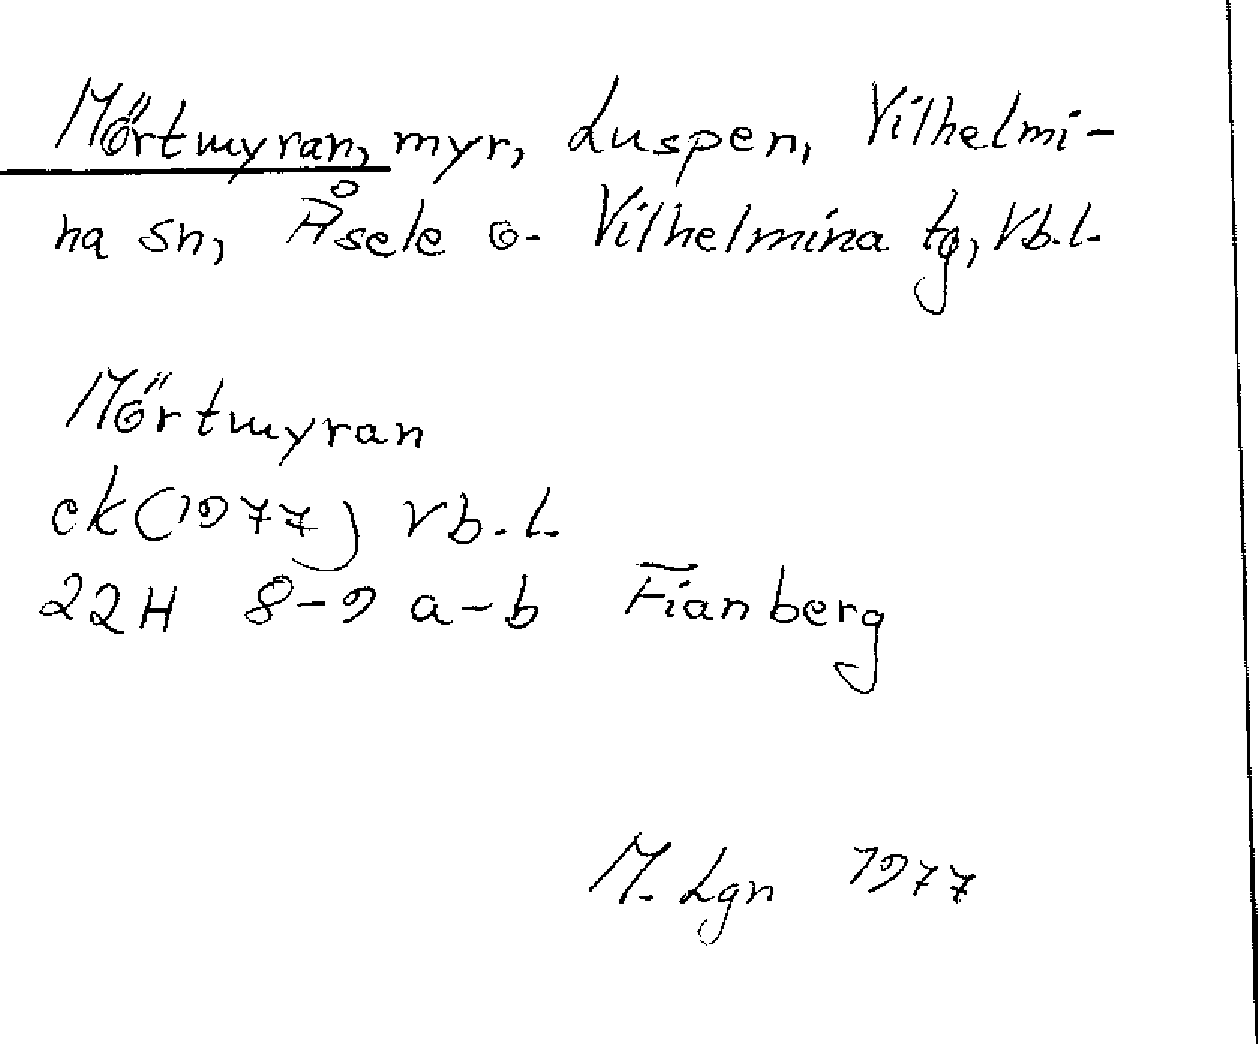 Mörtmyran, myr, Luspen, Vilhelmi-
na sn, Åsele o. Vilhelmina tg, Vb.l.
Mörtmyran
ek (1977) Vb.l.
22H 8-9 a-b Fianberg
M. Lgn 1977